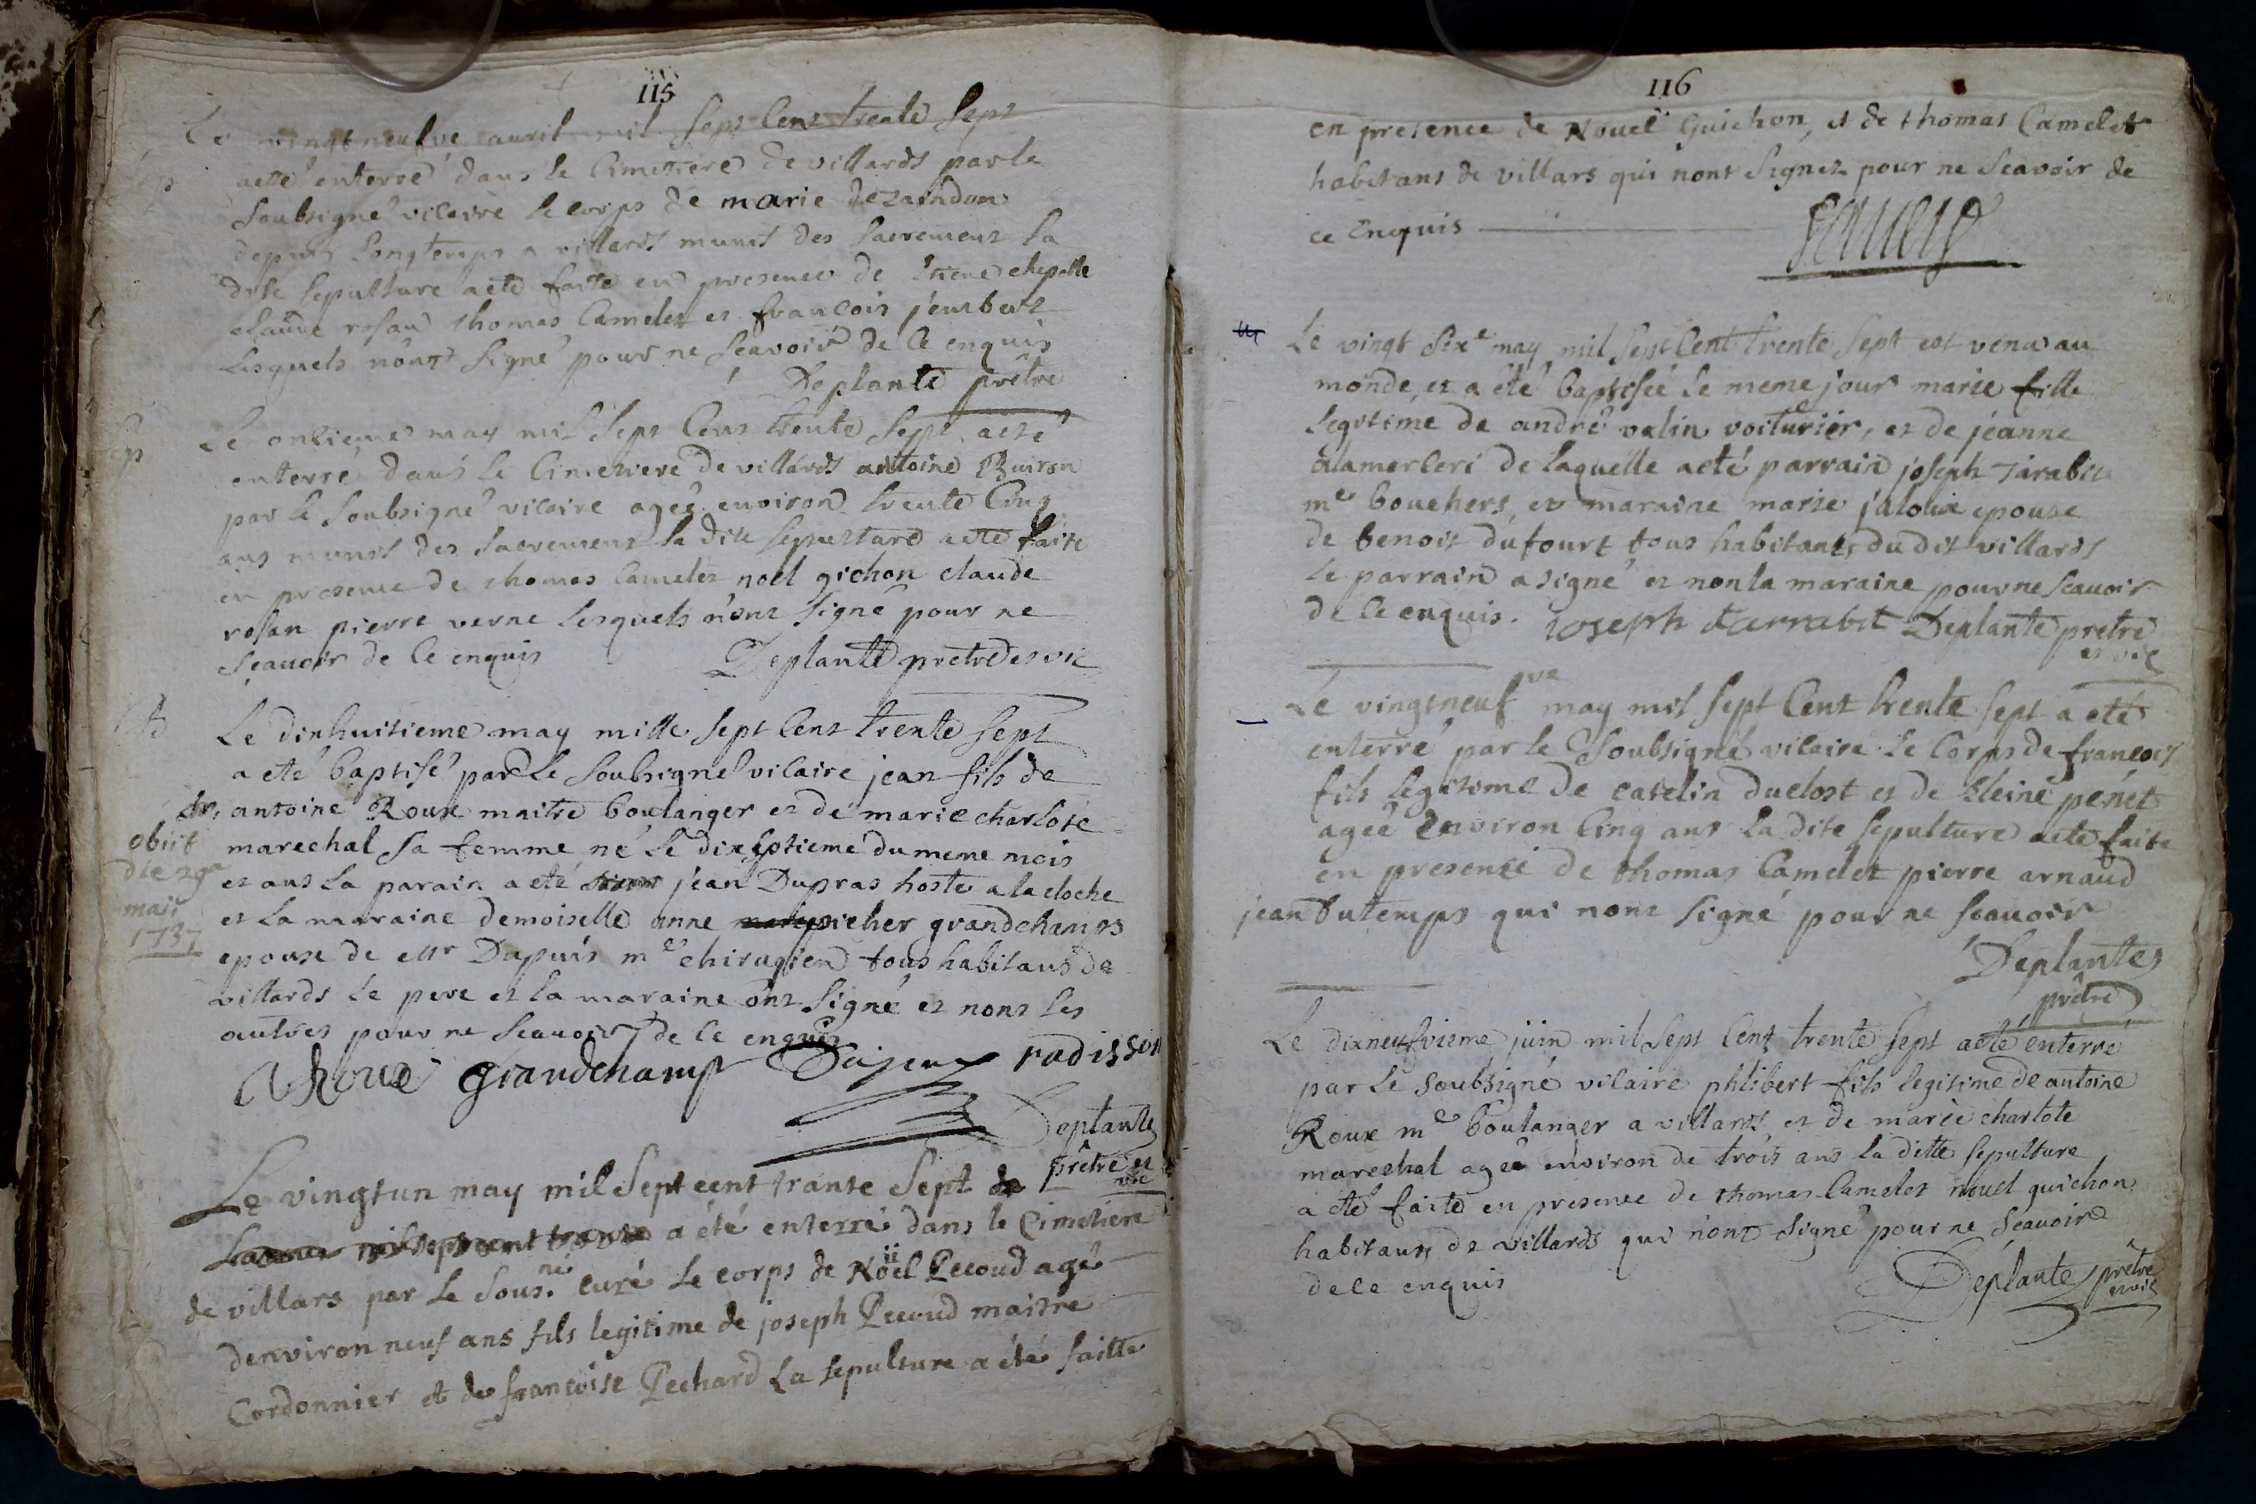 115
Le vingt neufve avril mil sept Cent trente sept
acté enterré dans le Cimetiere de villards par le
soubsigné vicaire le corps de marie dezaindon
depuis longtemps a villards munit des sacrement la
dite sepulture acté faite en presence de chapelle
claude rosan thomas Camelet et francois
lesquels n'ont signé pour ne scavoir de ce enquis
Deplante prêtre
Sep
Le onzieme may mil sept Cens trente sept acté
enterré dans le Cimetiere de villards antoine Buiron
par le soubsigné vicaire ageé environ trente Cinq
ans munit des sacrement la dite sepulture acté faite
en presence de thomas Camelet noel gichon claude
rosan pierre verne lesquels n'ont signé pour ne
sçavoir de ce enquis Deplante prêtre et vic
Le dixhuitieme may mille sept Cent trente sept
a eté baptisé par le soubsigné vicaire jean fils de
antoine Roux maitre boulanger et de marie charlote
marechal sa femme né le dixseptieme du meme mois
et ans la parain a eté jean Dupras hoste a la cloche
et la maraine demoiselle anne picher grandchamps
epouse de Mr Dapuis me chirugien tous habitans de
villards le pere et la maraine ont signé et nont les
autres pour ne scavoir de ce enquis
obiit
die 29a
maii
1737
A Roux grandchamp radisson
Deplante
prêtre et
vic
Le vingt un may mil sept cent trante sept de
a été enterré dans le Cimetiere
de villars par le sous.né curé le corps de Nöel Pecoud agé
denviron neuf ans fils legitime de joseph Pecoud maitre
Cordonnier et de françoise Pechard La sepulture a été faitte
116
en presence de Nouel Guichon, et de thomas Camelet
habitans de villars qui nont signez pour ne scavoir de
ce Enquis
Le vingt sixe may mil sept Cent trente sept est venu au
monde, et a été baptisée le meme jour marie fille
legitime de andré valin voiturier, et de jéanne
alamerceri de laquelle acté parrain joseph Tarabit
me bouchers, et maraine marie jaloux epouse
de benoit dufourt tous habitants du dit villards
le parrain a signé et non la maraine pour ne scavoir
de ce enquis. ioseph tarrabit Deplante prêtre
et vic
Le vingtneufve may mil sept Cent trente sept a eté
enterré par le soubsigné vicaire le Corps de francois
fils legitime de catelin duclost et de pénét
ageé Environ Cinq ans la dite sepulture acté faite
en presence de thomas Camelet pierre arnaud
jean dutemps qui nont signé pour ne scavoir
Deplante
prêtre
Le dixneufvieme juin mil sept Cent trente sept acté enterré
par le soubsigné vicaire phlibert fils legitime de antoine
Roux me boulanger a villards et de marie charlote
mareshal ageé environ de trois ans la ditte sepulture
a eté faite en presence de thomas Camelet nouel guichon
habitans de villards qui n'ont signé pour ne scavoire
de ce enquis
Deplante prêtre
et vic